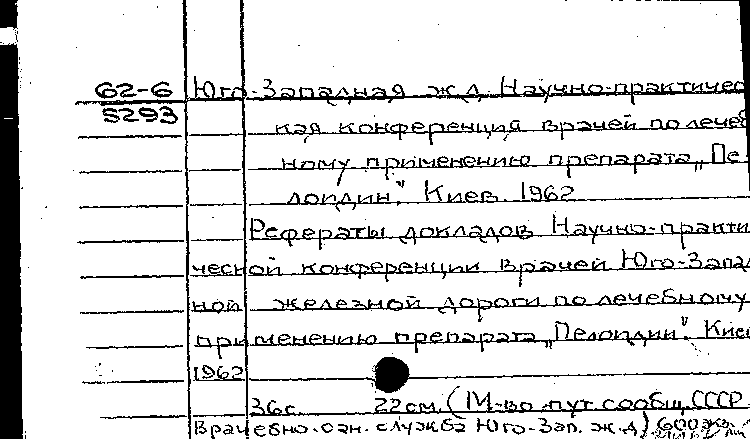 62-6 Юго-Западная ж.д. Научно-практичес
5293
кая конференция врачей по лечеб
ному применению препарата „Пе-
лоидин". Киев. 1962
Рефераты докладов Научно-практи
ческой конференции врачей Юго-Запад
ной железной дороги по лечебному
применению препарата „Пелоидин". Киев
1962
36с. 22см. (М-во пут. сообщ. СССР
Врачебно-сан. служба Юго-Зап. ж.д.) 600экз